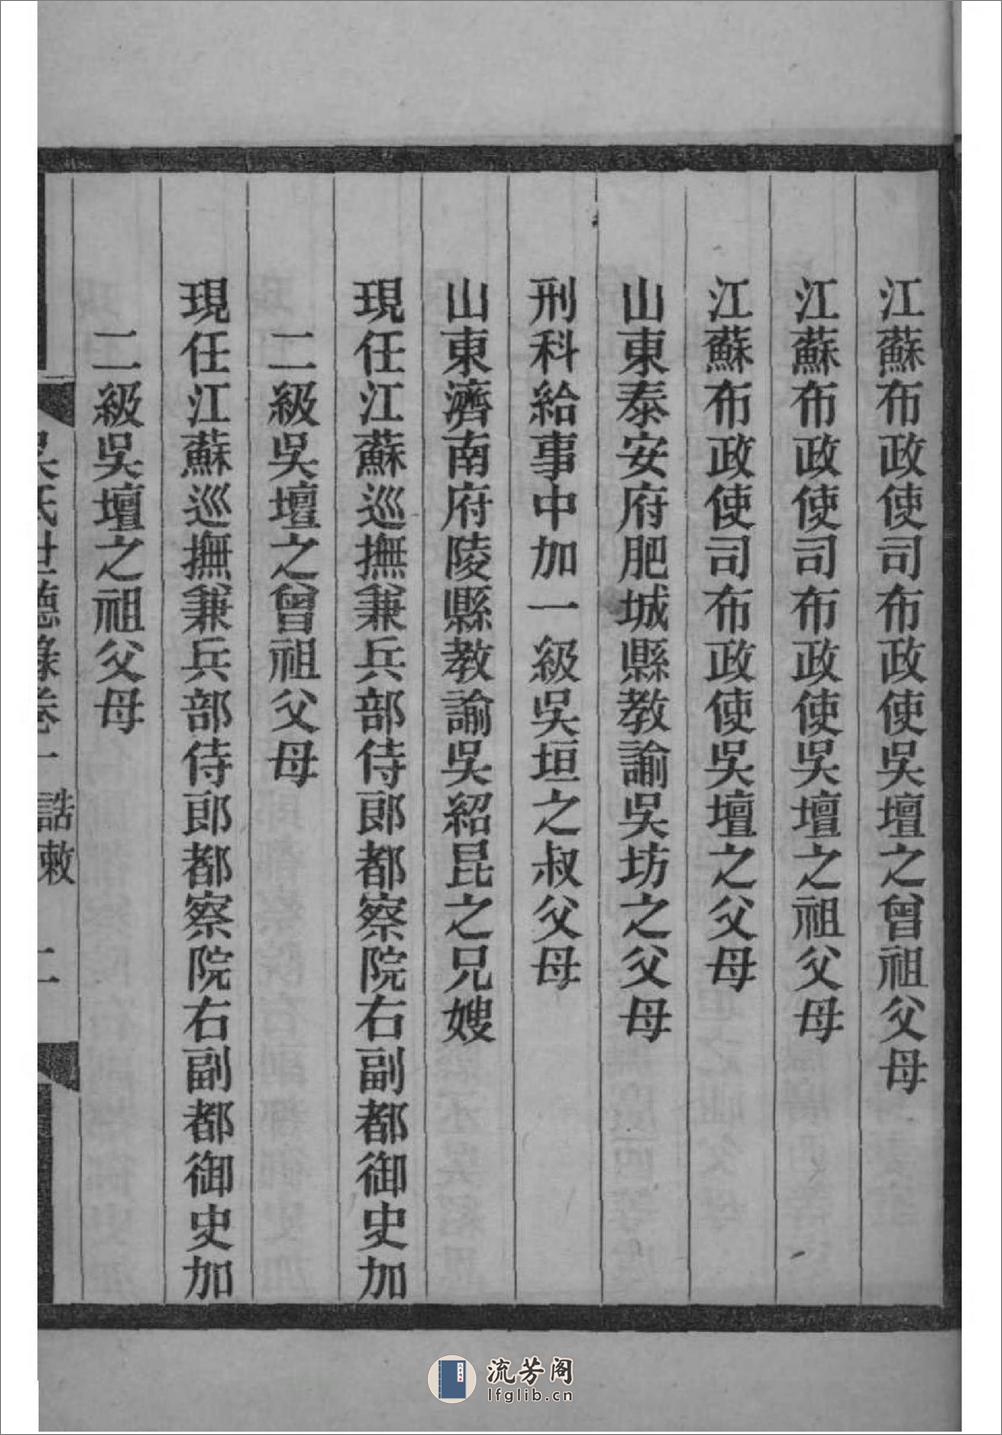 江蘇布政使司布政使吳壇之曾祖父母
江蘇布政使司布政使吳壇之祖父母
江蘇布政使司布政使吳壇之父母
山東泰安府肥城縣教諭吳坊之父母
刑科給事中加一級吳垣之叔父母
山東濟南府陵縣教諭吳紹昆之兄嫂
現任江蘇巡撫兼兵部侍郎都察院右副都御史加
二級吳壇之曾祖父母
現任江蘇巡撫兼兵部侍郎都察院右副都御史加
二級吳壇之祖父母
吳氏世德錄卷一 誥敕 二
流芳阁
lfglib.cn